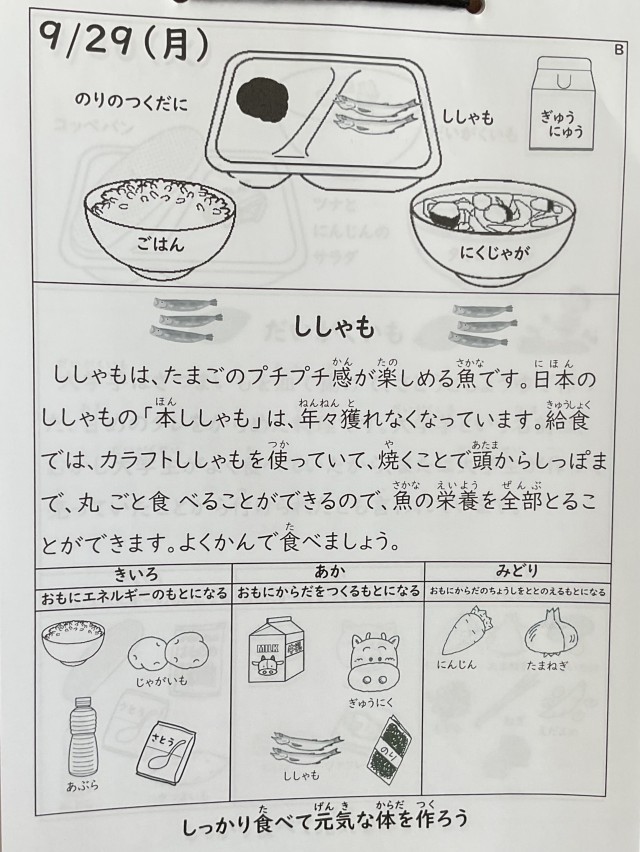 9/29(月)
B
のりのつくだに
ししゃも
ぎゅう
にゅう
ごはん
にくじゃが
ししゃも
ししゃもは、たまごのプチプチ感が楽しめる魚です。日本の
ししゃもの「本ししゃも」は、年々獲れなくなっています。給食
では、カラフトししゃもを使っていて、焼くことで頭からしっぽま
で、丸ごと食べることができるので、魚の栄養を全部とるこ
とができます。よくかんで食べましょう。
きいろ
おもにエネルギーのもとになる
じゃがいも
あぶら
さとう
あか
おもにからだをつくるもとになる
MILK
ぎゅうにく
ししゃも
のり
みどり
おもにからだのちょうしをととのえるもとになる
にんじん
たまねぎ
しっかり食べて元気な体を作ろう